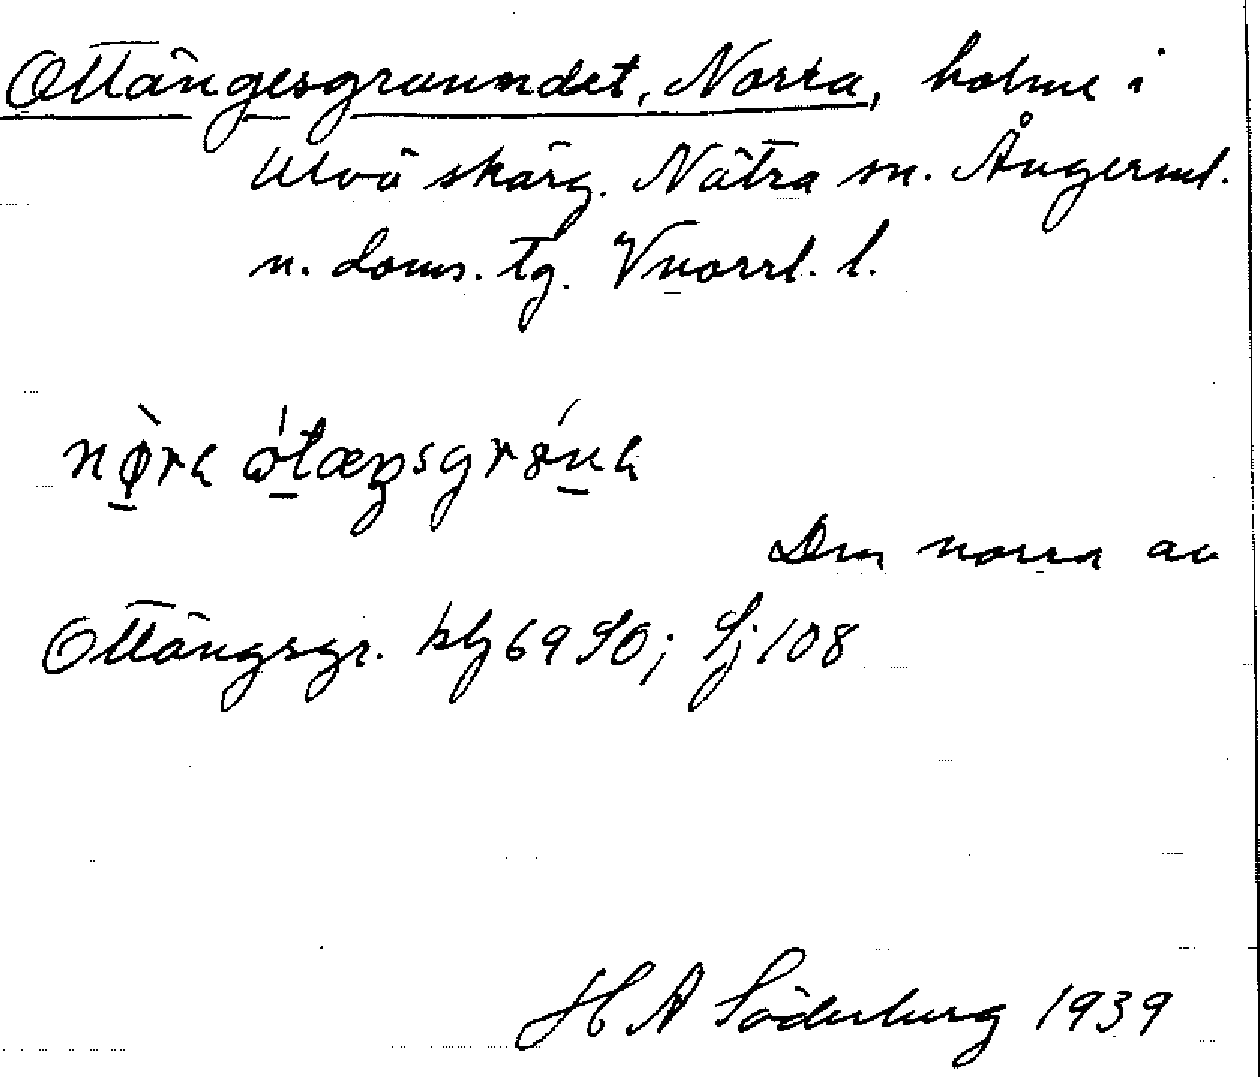 Ottängesgrundet, Norra, holme i
Ulvö skärg. Nätra sn. Ångerml.
n. doms. tg. Vnorrl. l.
nø̀ra ótæŋsgróna
Den norra av
Ottängsgr. kbg 69 SO; Sj 108
H A Söderberg 1939